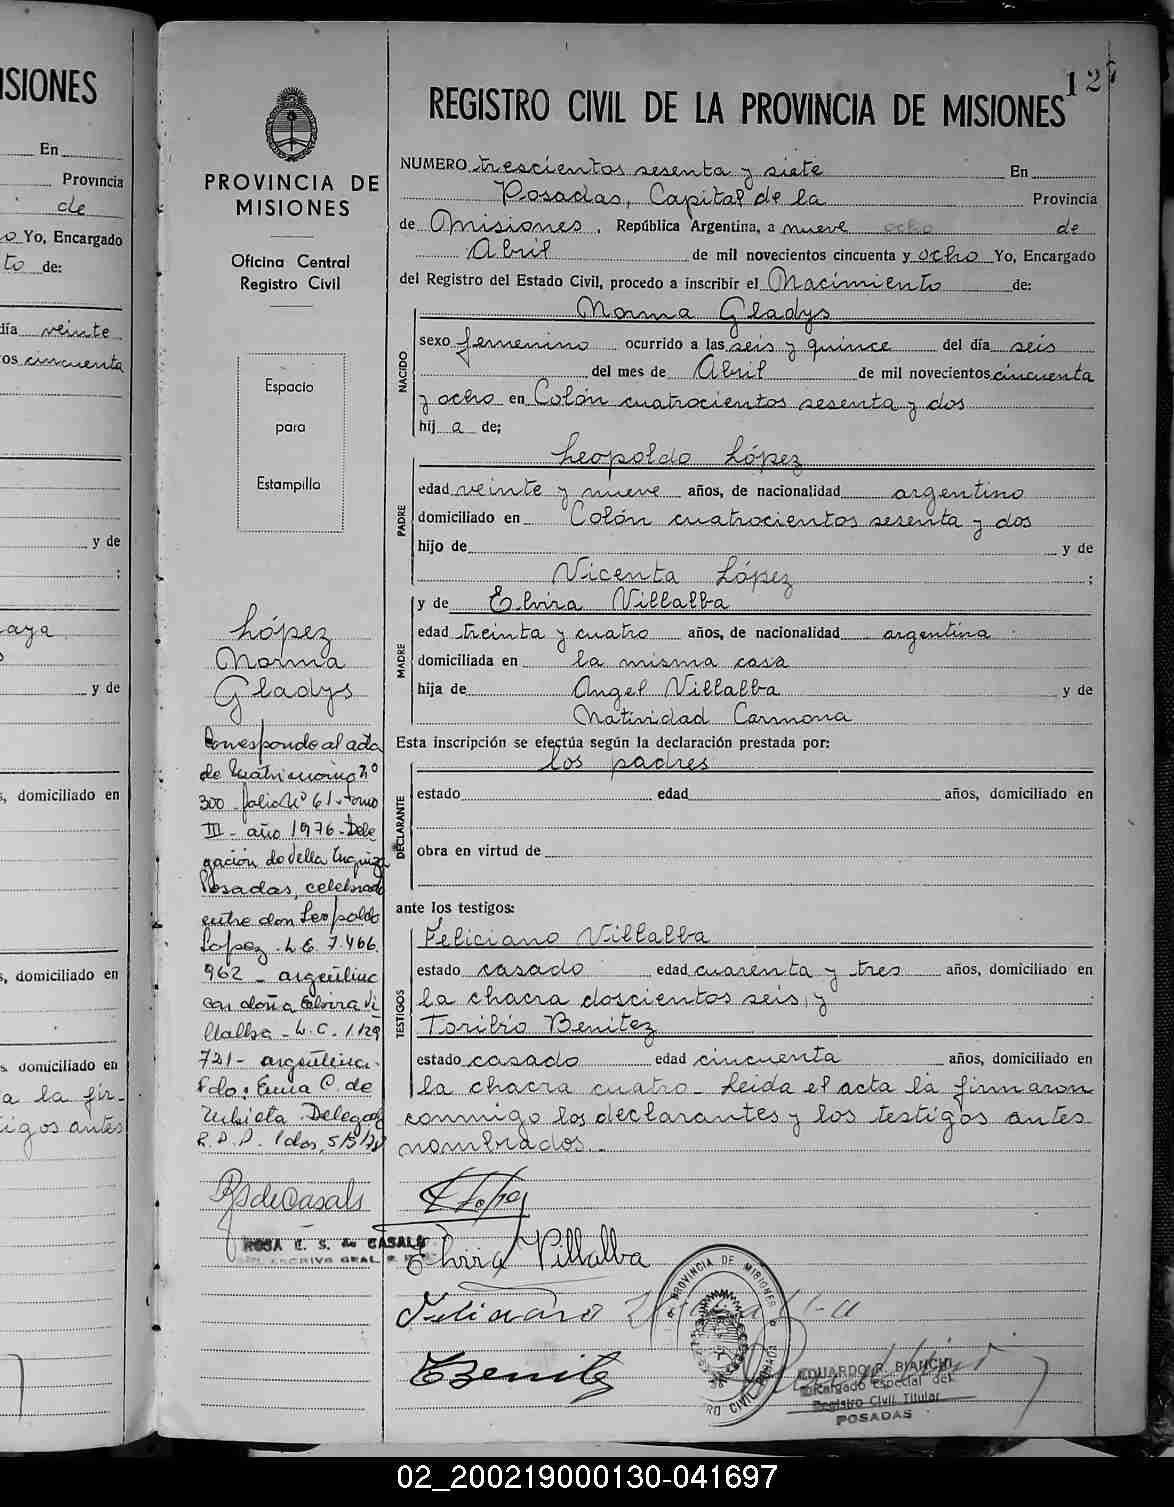 ISIONES
En
Provincia
de
Yo, Encargado
to de:
día veinte
os cincuenta
y de
;
y de
s, domiciliado en
s, domiciliado en
s domiciliado en
a la fir-
igos antes
127
PROVINCIA DE
MISIONES
Oficina Central
Registro Civil
Espacio
para
Estampilla
López
Norma
Gladys
Corresponde al acta
de Matrimonio nº
300 folio Nº 61 - tomo
III - año 1976 - Dele
gación de Villa Urquiza
Posadas, celebrado
entre don Leopoldo
Lopez - L.E. 7.466.
962 - argentino
con doña Elvira Vi
llalba - L.C. 1.129
721 - argentina.
Fdo: Ema C. de
Zubieta Delegada
R.D.P. Pdas, 5/5/
RSdeCasals
ROSA E. S. de CASALS
REGISTRO CIVIL DE LA PROVINCIA DE MISIONES
NUMERO trescientos sesenta y siete En
Posadas, Capital de la Provincia
de Misiones, República Argentina, a nueve ocho de
Abril de mil novecientos cincuenta y ocho Yo, Encargado
del Registro del Estado Civil, procedo a inscribir el Nacimiento de:
NACIDO
Norma Gladys
sexo femenino ocurrido a las seis y quince del día seis
del mes de Abril de mil novecientos cincuenta
y ocho en Colón cuatrocientos sesenta y dos
hij a de;
PADRE
Leopoldo López
edad veinte y nueve años, de nacionalidad argentino
domiciliado en Colón cuatrocientos sesenta y dos
hijo de y de
Vicenta López ;
MADRE
y de Elvira Villalba
edad treinta y cuatro años, de nacionalidad argentina
domiciliada en la misma casa
hija de Angel Villalba y de
Natividad Carmona
Esta inscripción se efectúa según la declaración prestada por:
DECLARANTE
los padres
estado edad años, domiciliado en
obra en virtud de
ante los testigos:
TESTIGOS
Feliciano Villalba
estado casado edad cuarenta y tres años, domiciliado en
la chacra doscientos seis, y
Toribio Benitez
estado casado edad cincuenta años, domiciliado en
la chacra cuatro - Leida el acta la firmaron
conmigo los declarantes y los testigos antes
nombrados.-
L Lopez
Elvira Villalba
Feliciano Villalba
TBenitez
PROVINCIA DE MISIONES
REGISTRO CIVIL POSADAS
EDUARDO R. BIANCHI
Encargado Especial del
Registro Civil Titular
POSADAS
02_200219000130-041697